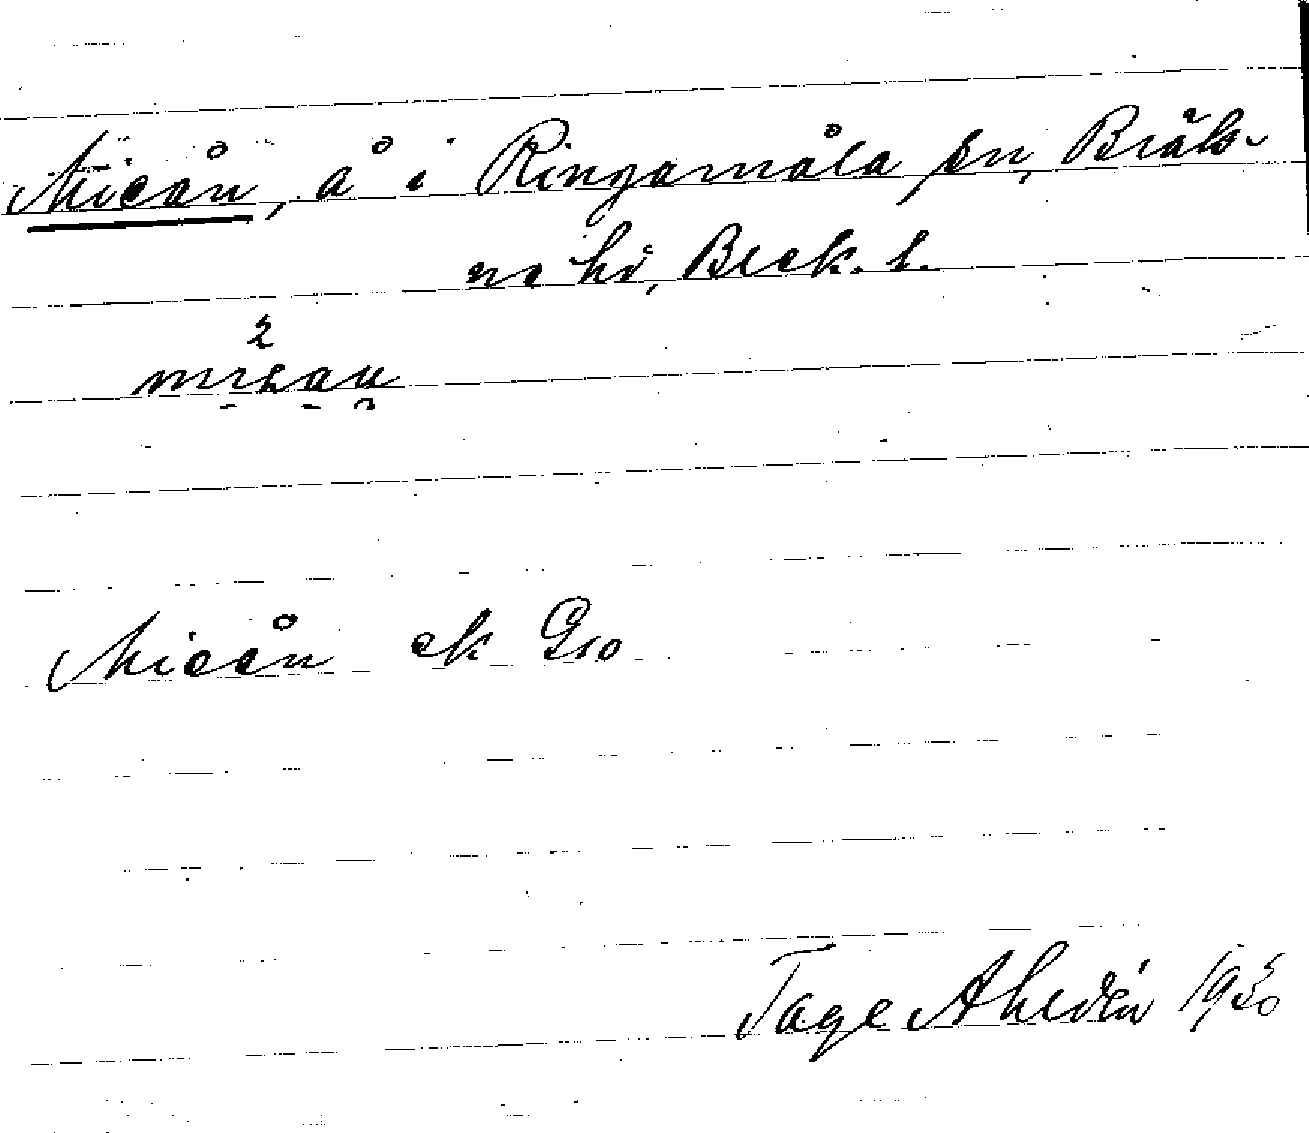 Mieån, å i Ringamåla sn, Bräk-
ne hd, Blek. l.
Mieån ek G10
Tage Ahldén 1930